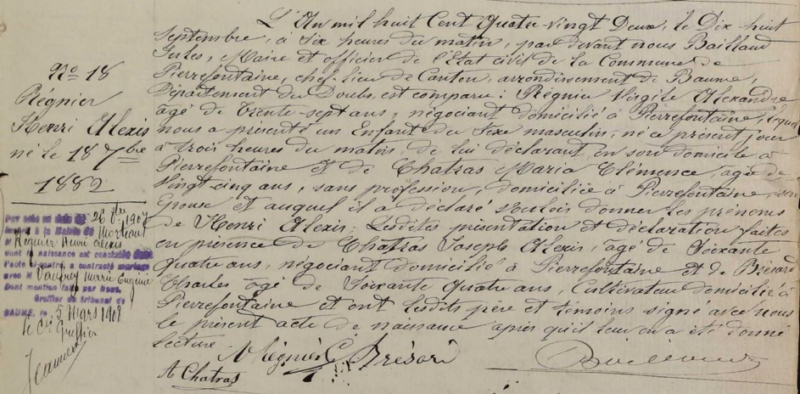 No 18
Régnier
Henri Alexis
né le 18 7bre
1882
Par acte en date du 26 1907
inscrit à la Mairie de Morteau
M Régnier Henri Alexis
dont la naissance est constatée dans
l'acte ci-contre, a contracté mariage
avec M Marie Eugénie
Dont mention faite par nous,
Greffier du tribunal de
BAUME, le 5 Mars 1908
Le Greffier
L'An mil huit Cent Quatre-vingt Deux, le Dix-huit
Septembre, à Six heures du matin, par devant nous Baillaud
Jules, Maire et officier de l'Etat civil de la Commune de
Pierrefontaine, chef-lieu de Canton, arrondissement de Baume,
Département du Doubs, est comparu : Régnier Virgile Alexandre
âgé de Trente-sept ans, négociant domicilié à Pierrefontaine, lequel
nous a présenté un Enfant du Sexe masculin, né ce présent jour
à trois heures du matin, de lui déclarant, en son domicile à
Pierrefontaine et de Chatras Maria Clémence, âgée de
Vingt-cinq ans, sans profession, domiciliée à Pierrefontaine, son
épouse et auquel il a déclaré vouloir donner les prénoms
de Henri Alexis. Lesdites présentation et déclaration faites
en présence de Chatras Joseph Alexis, âgé de Soixante
Quatre ans, négociant domicilié à Pierrefontaine et de Brésard
Charles âgé de Soixante Quatre ans, Cultivateur domicilié à
Pierrefontaine et ont lesdits père et témoins signé avec nous
le présent acte de naissance après qu'il leur en a été donné
Lecture.
V Régnier C. Brésard
A Chatras
Baillaud